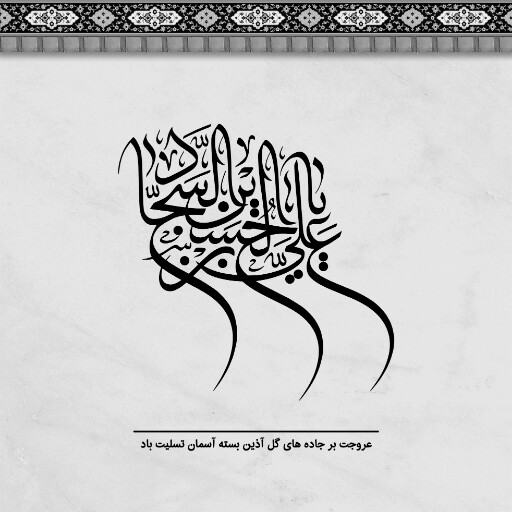 یا علی بن الحسین السجاد
عروجت بر جاده های گل آذین بسته آسمان تسلیت باد